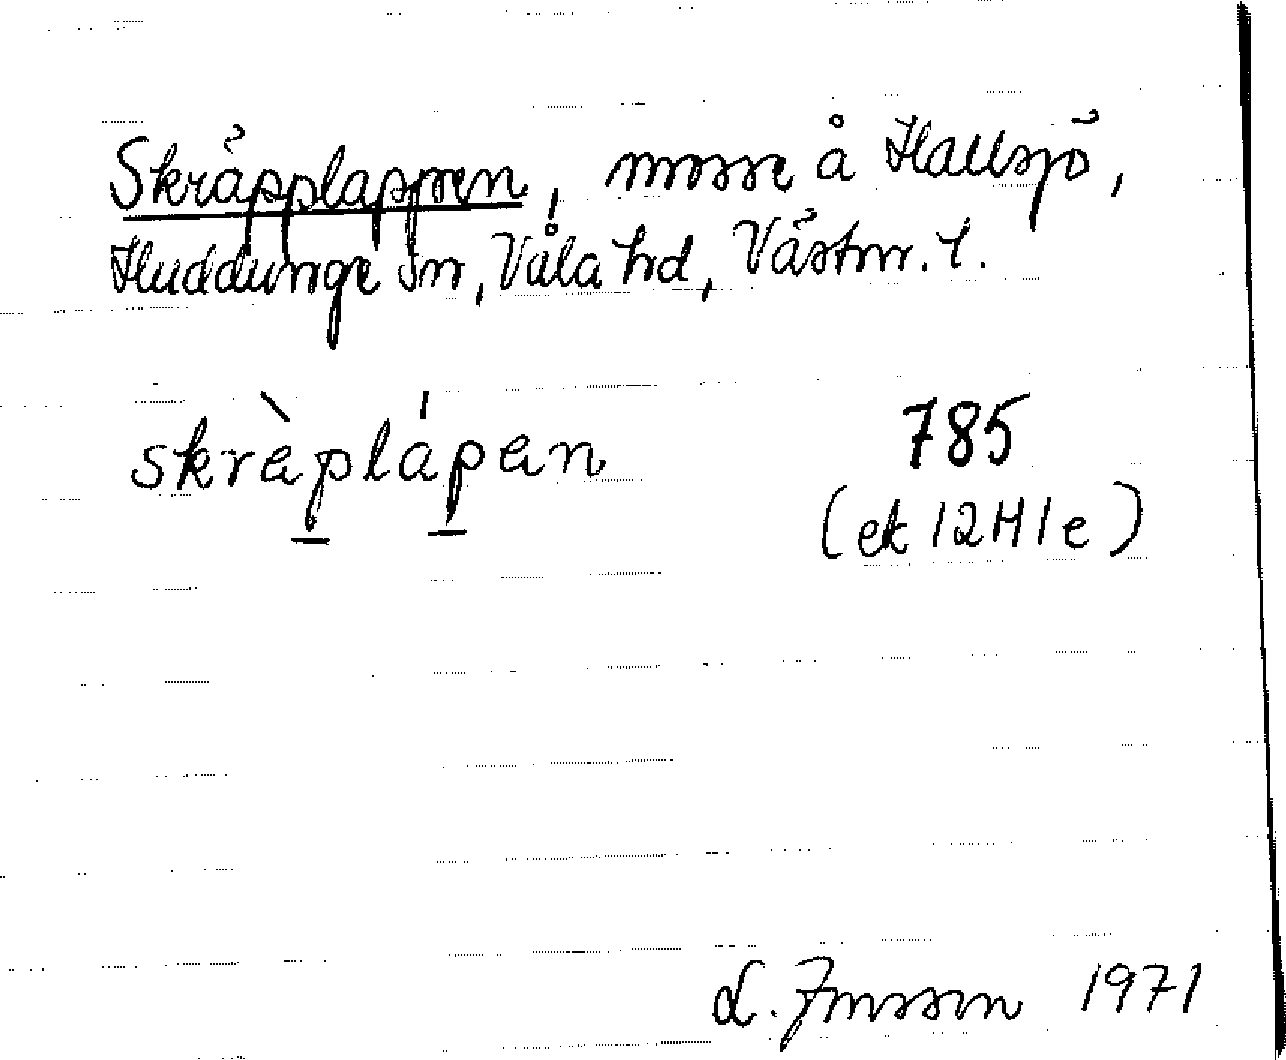 Skräpplappen, mosse å Hallsjö,
Huddunge sn, Våla hd, Västm. l.
skrèplápen 785
(ek 12H1e)
L. Jonsson 1971